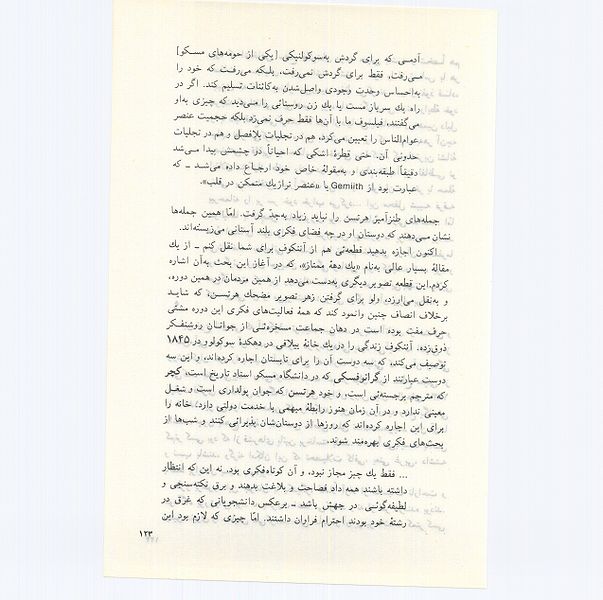 آدمـی که برای گردش به‌سوکولنیکی [یکی از حومه‌های مسکو]
مـی‌رفت، فقط برای گردش نمی‌رفت، بلکه می‌رفـت که خود را
به‌احساس وحدت وجودی واصل‌شدن به‌کائنات تسلیم کند. اگر در
راه یك سرباز مست یا یك زن روستائی را مـی‌دید که چیزی به‌او
می‌گفتند، فیلسوف ما با آن‌ها فقط حرف نمی‌زد بلکه حجمیت عنصر
عوام‌الناس را تعیین می‌کرد، هم در تجلیات بلافصل و هم در تجلیات
حدوثی آن. حتی قطرهٔ اشکی که احیاناً در چشمش پیدا مـی‌شد
دقیقاً طبقه‌بندی و به‌مقولهٔ خاص خود ارجـاع داده می‌شـد ــ که
عبارت بود از Gemiith یا «عنصر تراژیك متمکن در قلب».
جمله‌های طنزآمیز هرتسن را نباید زیاد به‌جدّ گرفت. امّا همین جمله‌ها
نشان مـی‌دهند که دوستان او در چه فضای فکری بلند آستانی می‌زیسته‌اند.
اکنون اجازه بدهید قطعه‌ئی هم از آننکوف برای شما نقل کنم ــ از یك
مقالهٔ بسیار عالی به‌نام «یك دههٔ ممتاز»، که در آغاز این بحث به‌آن اشاره
کردم. این قطعه تصویر دیگری به‌دست می‌دهد از همین مردمان در همین دوره،
و به‌نقل مـی‌ارزد، ولو برای گرفتن زهر تصویر مضحك هرتسـن، که شایـد
برخلاف انصاف چنین وانمود کند که همهٔ فعالیت‌های فکری این دوره مشتی
حرف مفت بوده است در دهان جماعت مسخره‌ئـی از جوانـان روشنفکر
ذوق‌زده. آننکوف زندگی را در یك خانهٔ ییلاقی در دهکدهٔ سوکولوو در ۱۸۴۵
توصیف می‌کند، که سه دوست آن را برای تابستان اجاره کرده‌اند، و این سه
دوست عبارتند از گرانوفسکی که در دانشگاه مسکو استاد تاریخ است، کچر
که مترجم برجسته‌ئی است، و خود هرتسن که جوان پولداری است و شغـل
معینی ندارد و در آن زمان هنوز رابطهٔ مبهمی با خدمت دولتی دارد؛ خانه را
برای این اجاره کرده‌اند که روزها از دوستان‌شان پذیرائی کنند و شب‌ها از
بحث‌های فکری بهره‌مند شوند.
... فقط یك چیز مجاز نبود، و آن کوتاه‌فکری بود. نه این که انتظار
داشته باشند همه داد فصاحت و بلاغت بدهند و برق نکته‌سنجی و
لطیفه‌گوئـی در جهش باشد ــ برعکس دانشجویانی که غرق در
رشتهٔ خود بودند احترام فراوان داشتند. امّا چیزی که لازم بود این
۱۲۳